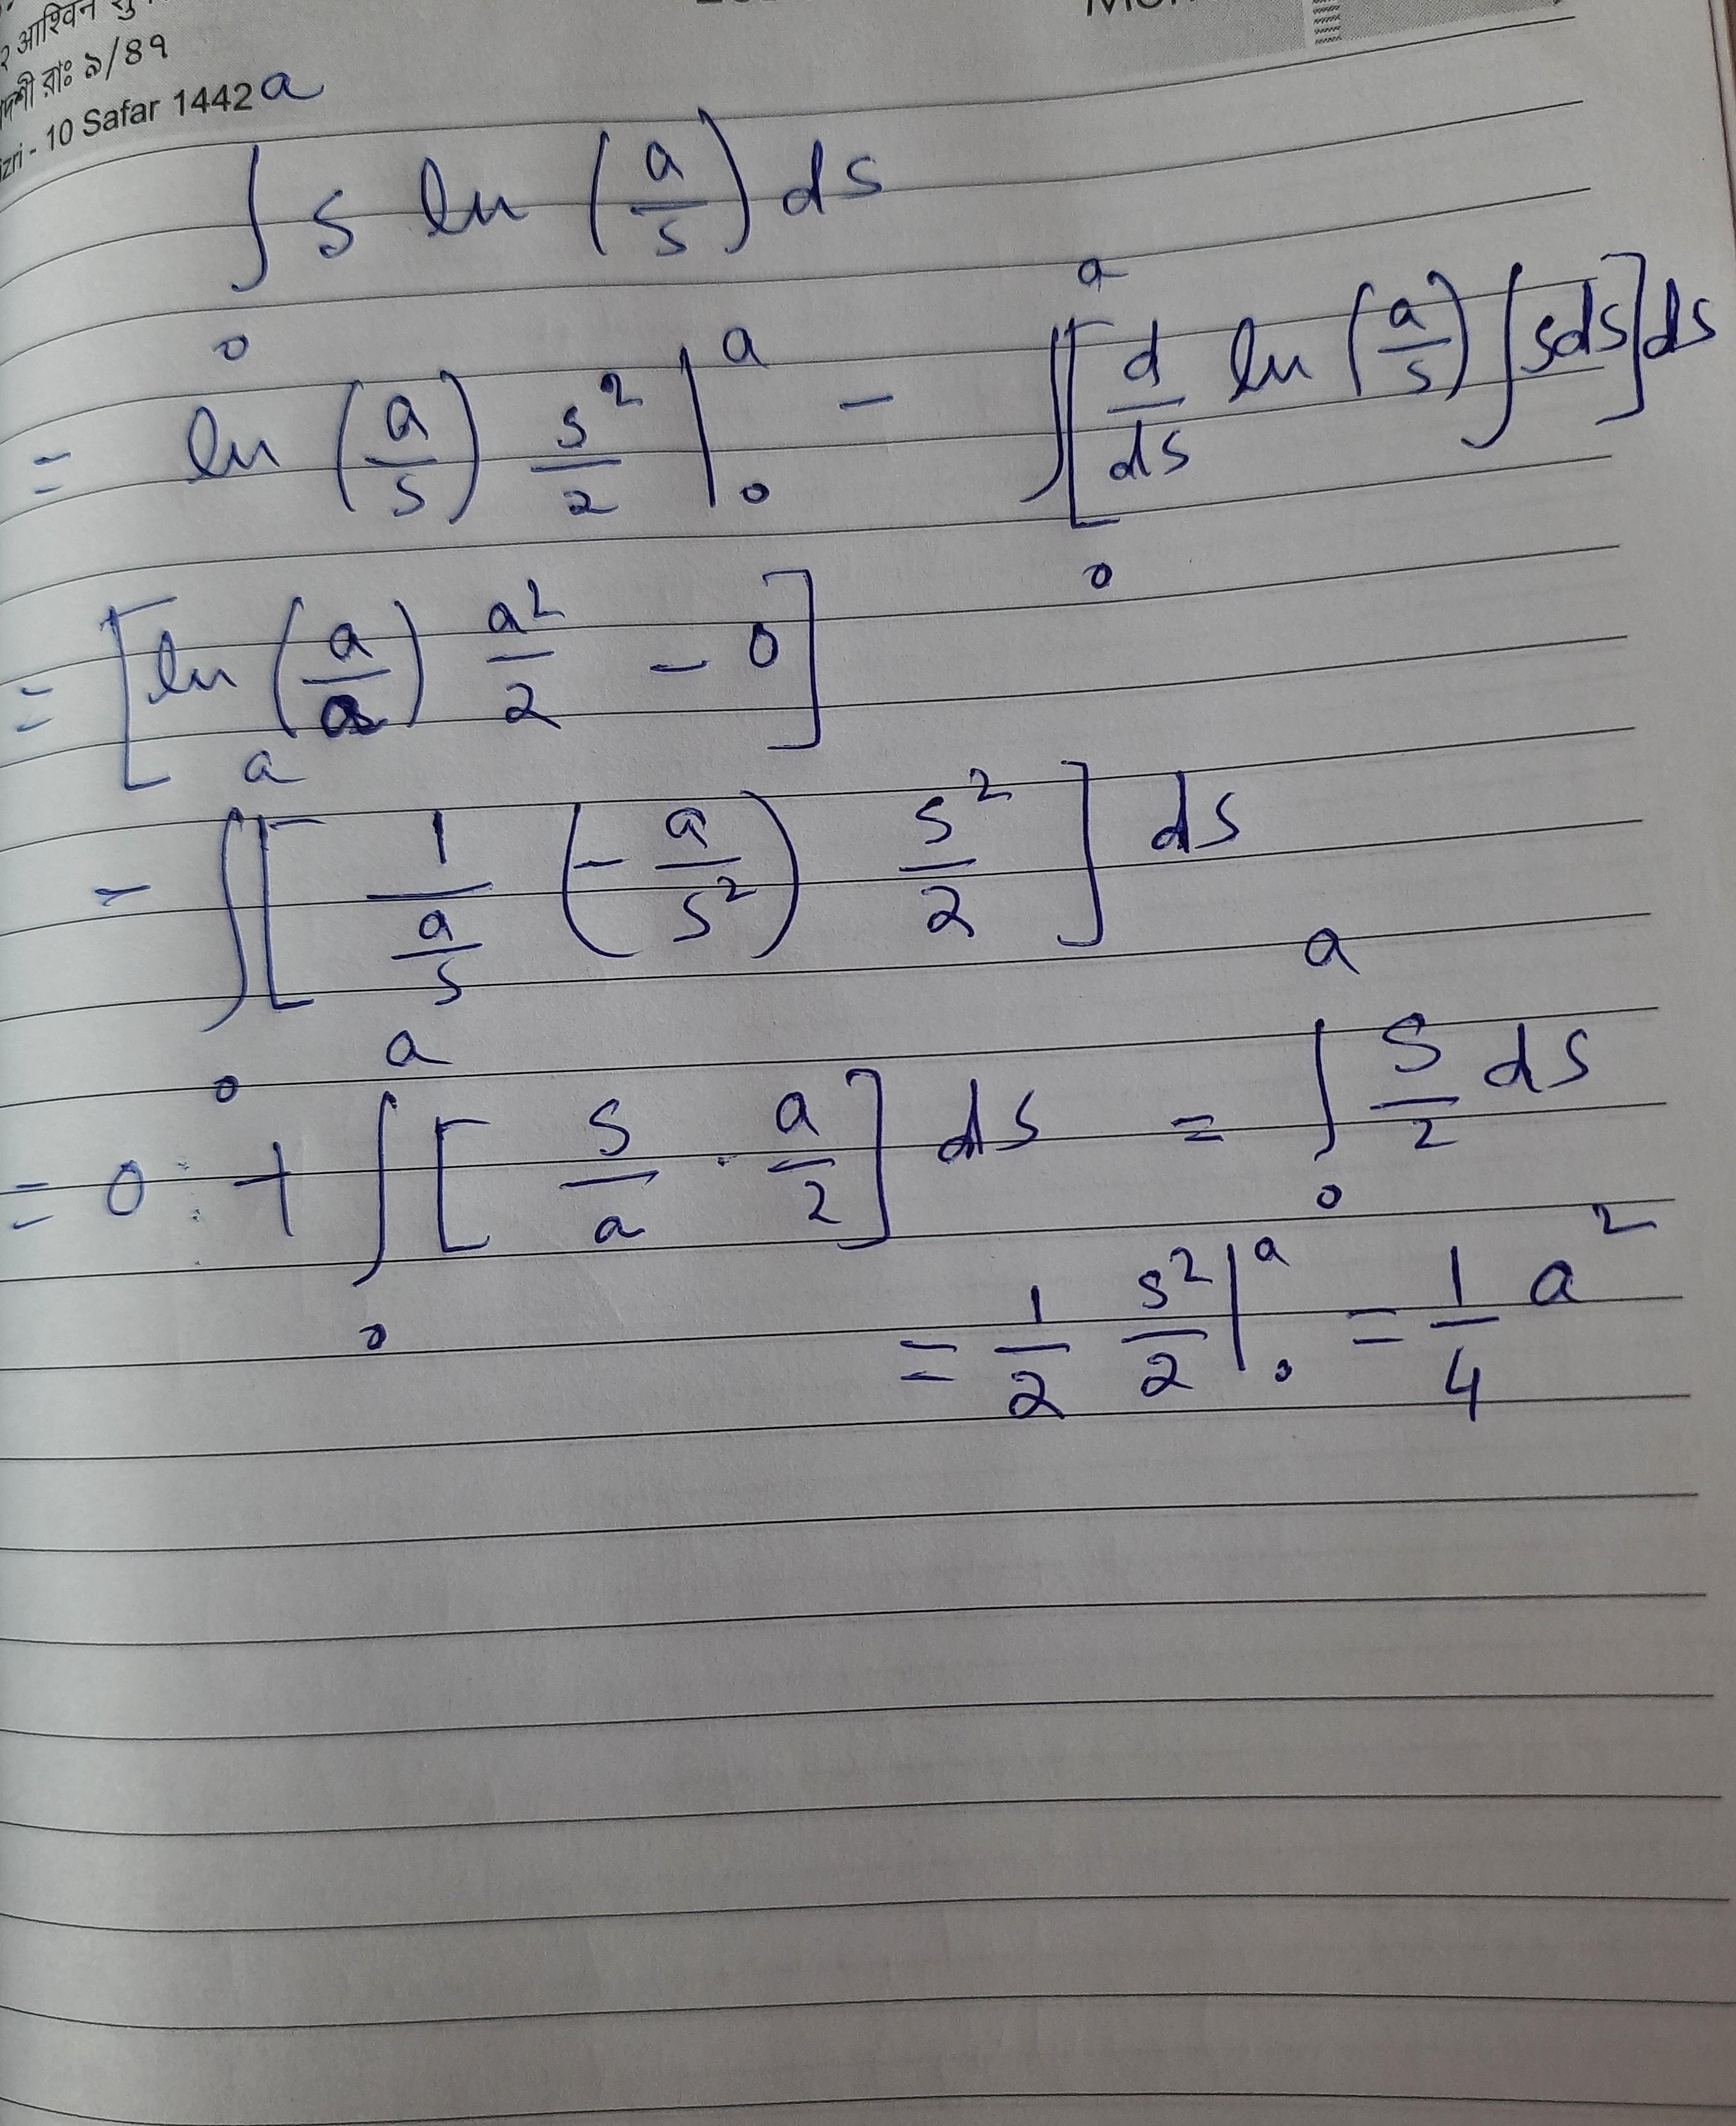 २ आश्विन
दशी राः ৯/৪৭
izri - 10 Safar 1442
∫₀ᵃ s ln (a/s) ds
= ln (a/s) s²/2 |₀ᵃ - ∫₀ᵃ [d/ds ln (a/s) ∫sds] ds
= [ln (a/a) a²/2 - 0]
- ∫₀ᵃ [1/(a/s) (-a/s²) s²/2] ds
= 0 + ∫₀ᵃ [s/a · a/2] ds = ∫₀ᵃ s/2 ds
= 1/2 s²/2 |₀ᵃ = 1/4 a²